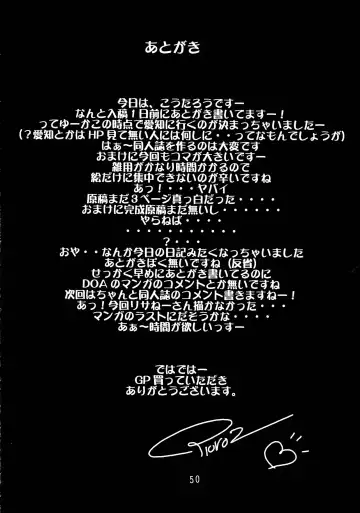 あとがき
今日は、こうたろうですー
なんと入稿1日前にあとがき書いてますー！
ってゆーかこの時点で愛知に行くのが決まっちゃいましたー
(？愛知とかはHP見て無い人には何しに・・ってなもんでしょうが)
はぁ～同人誌を作るのは大変です
おまけに今回もコマが大きいですー
雑用がかなり時間かかるので
絵だけに集中できないのが辛いですね
あっ！・・・ヤバイ
原稿まだ3ページ真っ白だった・・・・
おまけに完成原稿まだ無いし・・・・・・
やらねば・・・・
・・・・・・・・・・・
？・・・
おや・・なんか今日の日記みたくなっちゃいました
あとがきぽく無いですね（反省）
せっかく早めにあとがき書いてるのに
DOAのマンガのコメントとか無いですね
次回はちゃんと同人誌のコメント書きますねー！
あっ！今回リサねーさん描かなかった・・・
マンガのラストにだそうかな・・・・
あぁ～時間が欲しいっすー
ではではー
GP買っていただき
ありがとうございます。
50